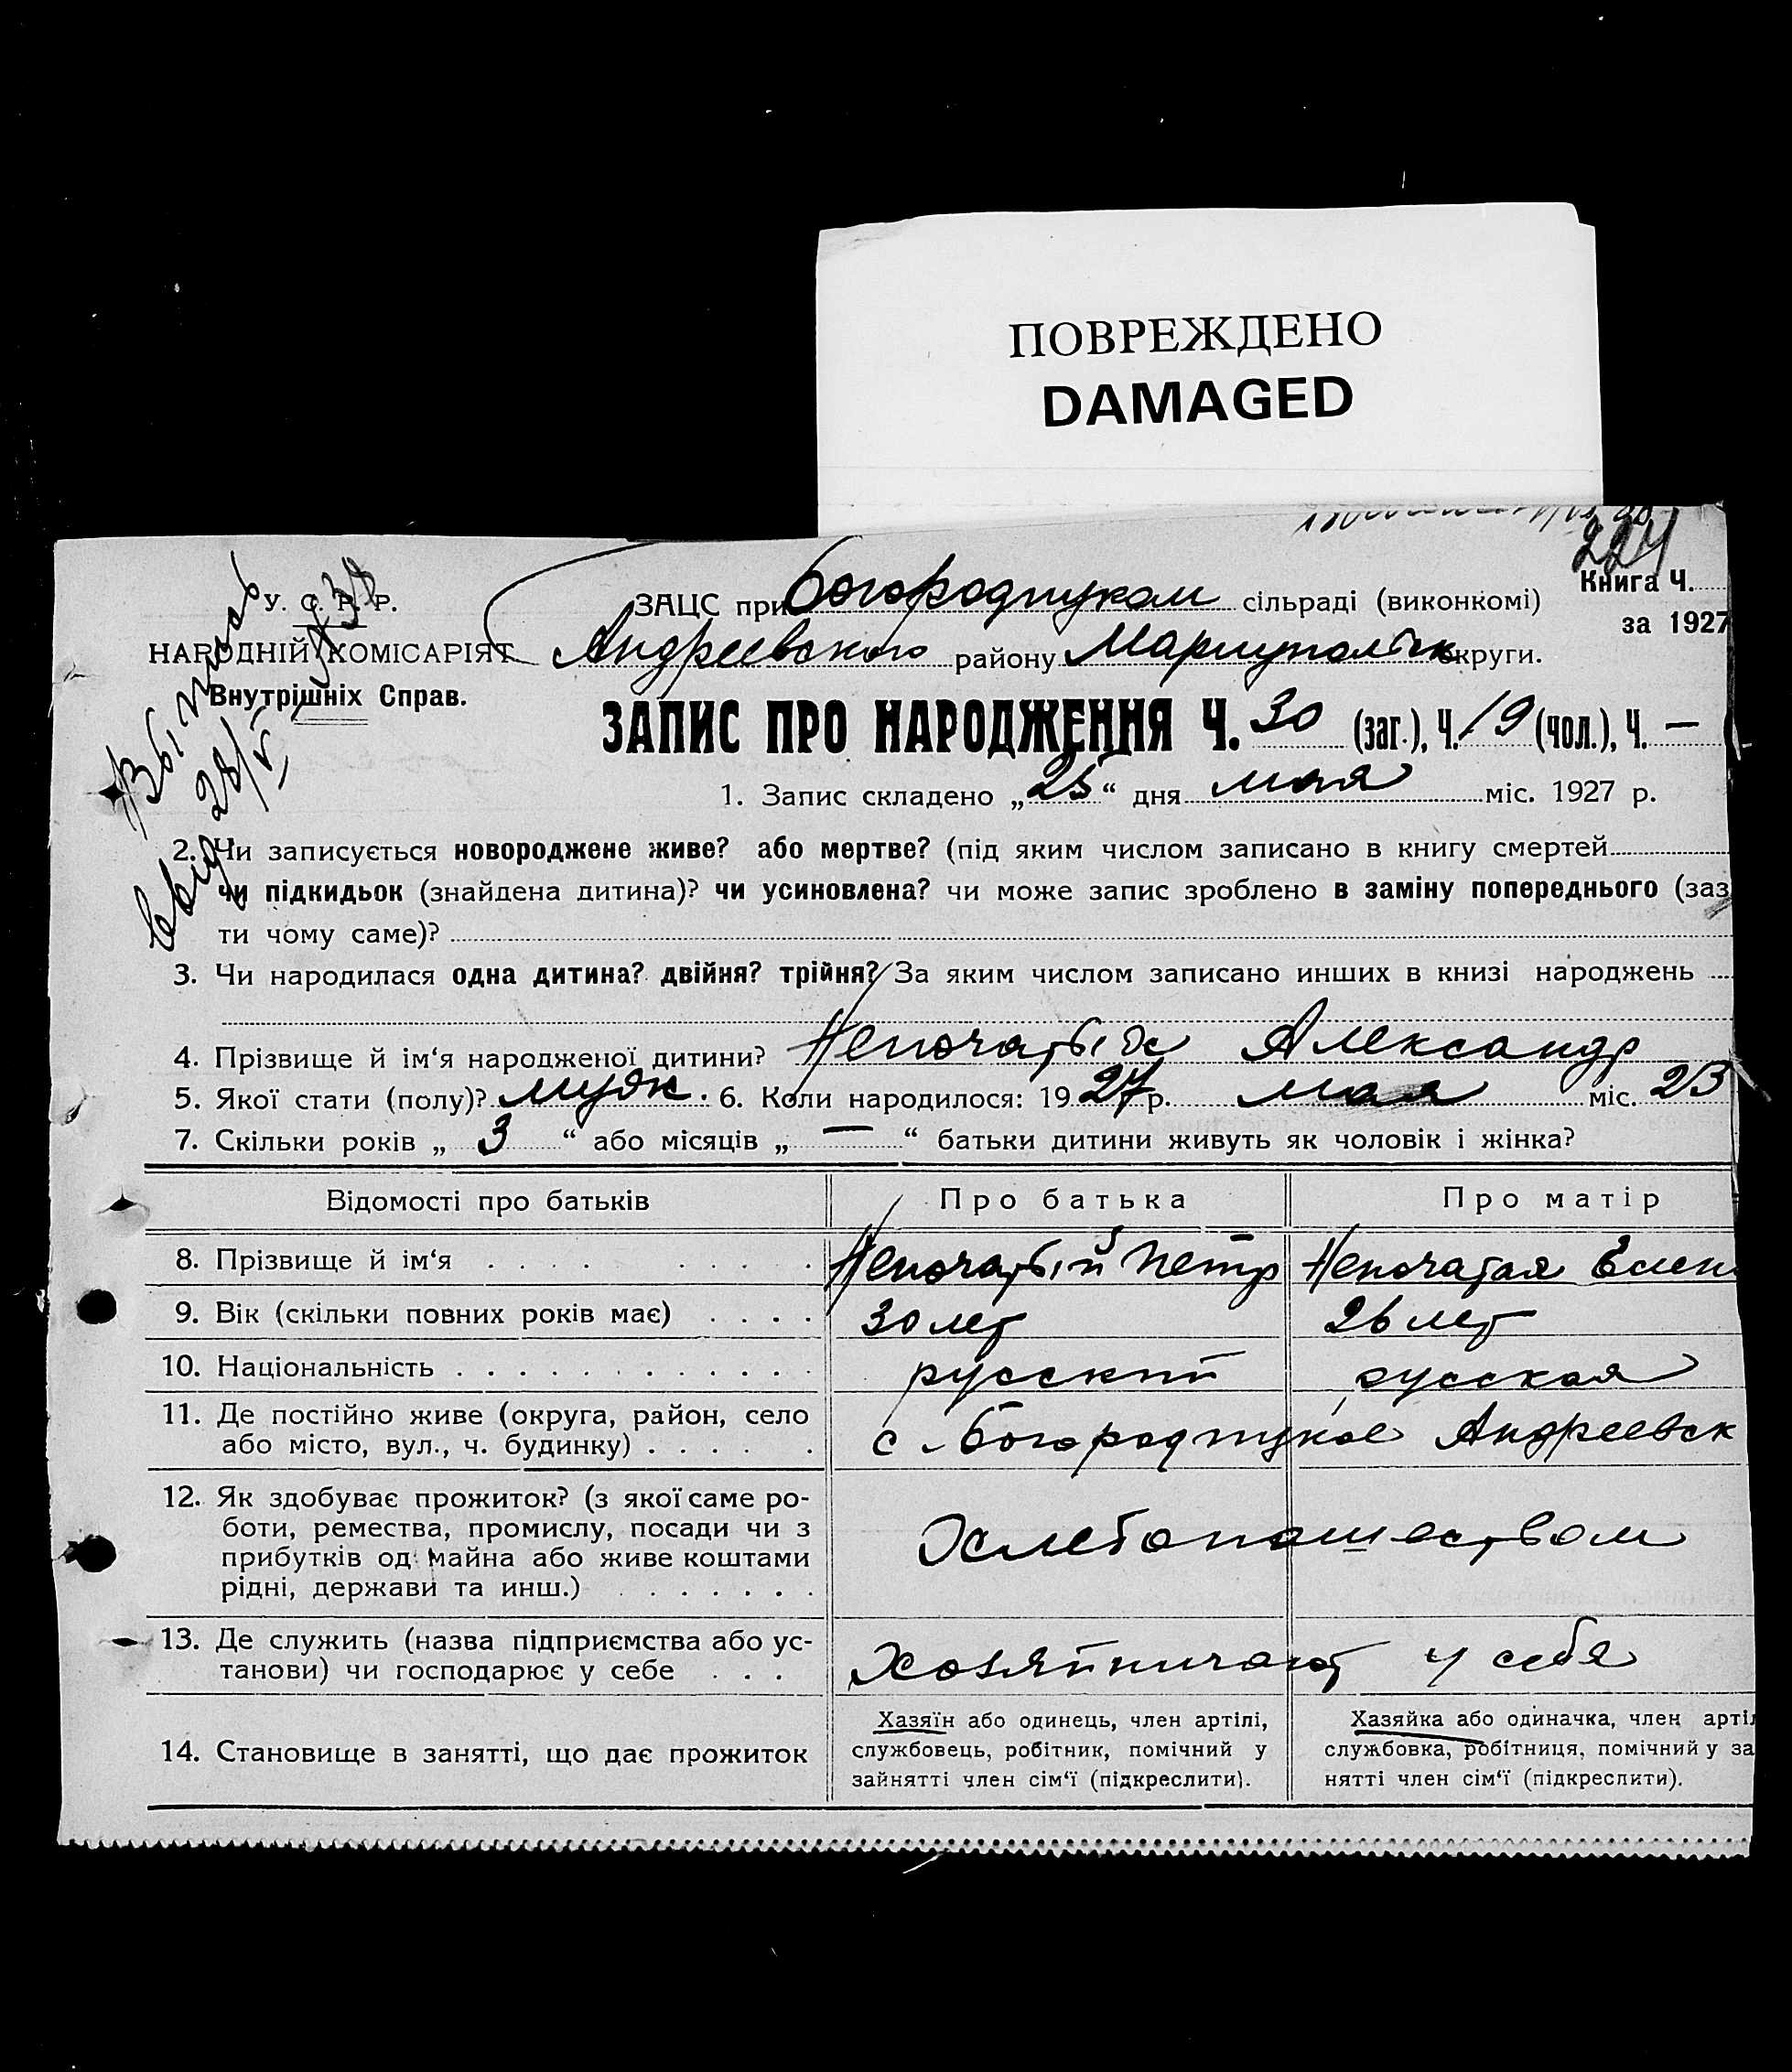 ПОВРЕЖДЕНО
DAMAGED
224
У. С. Р. Р.
НАРОДНІЙ КОМІСАРІЯТ
Внутрішніх Справ.
28/V
ЗАЦС при сільраді (виконкомі)
Книга Ч.
за 1927
Андреевского району Мариупольск округи.
ЗАПИС ПРО НАРОДЖЕННЯ Ч. 30 (заг.), Ч. 19 (чол.), Ч. —
1. Запис складено „25“ дня мая міс. 1927 р.
2. Чи записується новороджене живе? або мертве? (під яким числом записано в книгу смертей
чи підкидьок (знайдена дитина)? чи усиновлена? чи може запис зроблено в заміну попереднього (заз
ти чому саме)?
3. Чи народилася одна дитина? двійня? трійня? За яким числом записано инших в книзі народжень
4. Прізвище й ім‘я народженої дитини? Непочатый Александр
5. Якої стати (полу)? муж. 6. Коли народилося: 1927 р. мая міс. 23
7. Скільки років „ 3 “ або місяців „ — “ батьки дитини живуть як чоловік і жінка?
Відомості про батьків Про батька Про матір
8. Прізвище й ім‘я Непочатый Петр Непочатая Елен
9. Вік (скільки повних років має) 30 лет 26 лет
10. Національність русский русская
11. Де постійно живе (округа, район, село
або місто, вул., ч. будинку) с Андреевск
12. Як здобуває прожиток? (з якої саме ро-
боти, ремества, промислу, посади чи з
прибутків од майна або живе коштами
рідні, держави та инш.) Хлебопашеством
13. Де служить (назва підприємства або ус-
танови) чи господарює у себе Хозяйничают у себя
14. Становище в занятті, що дає прожиток
Хазяїн або одинець, член артілі,
службовець, робітник, помічний у
зайнятті член сім‘ї (підкреслити).
Хазяйка або одиначка, член арті
службовка, робітниця, помічний у за
нятті член сім‘ї (підкреслити).